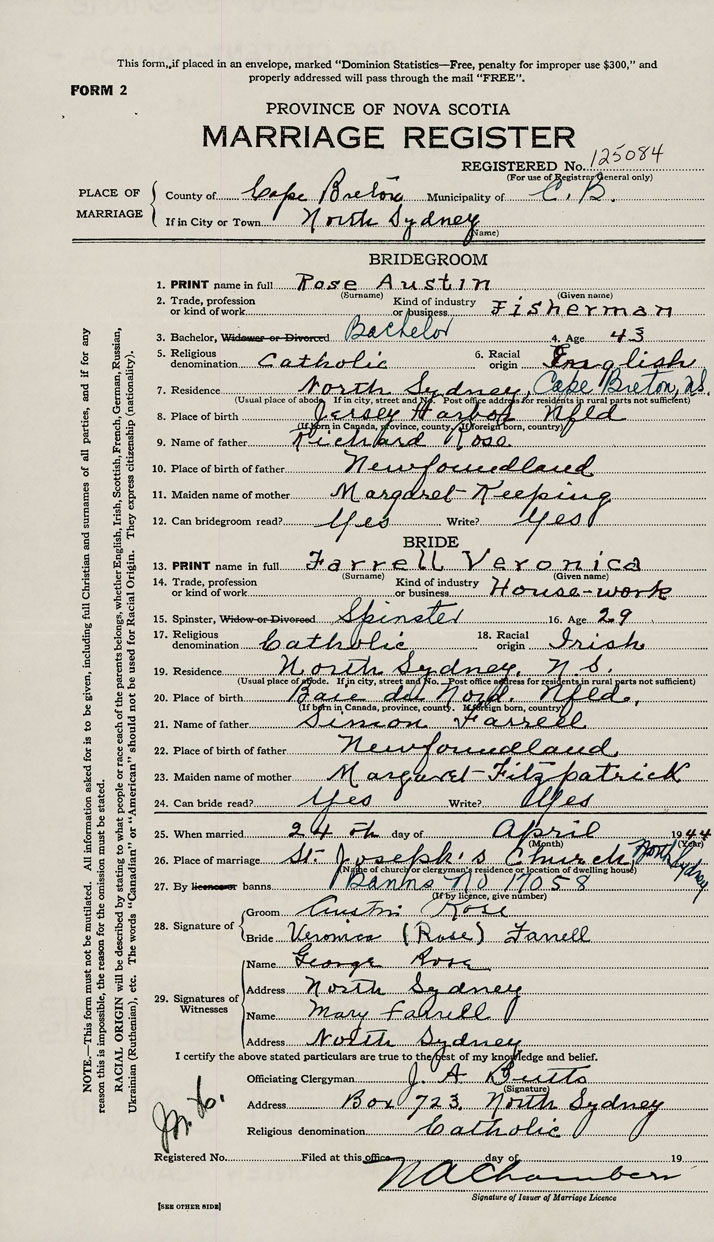 This form, if placed in an envelope, marked "Dominion Statistics—Free, penalty for improper use $300," and
properly addressed will pass through the mail "FREE".
FORM 2
PROVINCE OF NOVA SCOTIA
MARRIAGE REGISTER
REGISTERED No. 125084
(For use of Registrar General only)
PLACE OF MARRIAGE
County of Cape Breton Municipality of C. B.
If in City or Town North Sydney
(Name)
BRIDEGROOM
1. PRINT name in full Rose Austin
(Surname) (Given name)
2. Trade, profession or kind of work Kind of industry or business Fisherman
3. Bachelor, Widower or Divorced Bachelor 4. Age 43
5. Religious denomination Catholic 6. Racial origin English
7. Residence North Sydney, Cape Breton, N.S.
(Usual place of abode. If in city, street and No. Post office address for residents in rural parts not sufficient)
8. Place of birth Jersey Harbor Nfld
(If born in Canada, province, county. If foreign born, country)
9. Name of father Richard Rose
10. Place of birth of father Newfoundland
11. Maiden name of mother Margaret Keeping
12. Can bridegroom read? Yes Write? Yes
BRIDE
13. PRINT name in full Farrell Veronica
(Surname) (Given name)
14. Trade, profession or kind of work Kind of industry or business House-work
15. Spinster, Widow or Divorced Spinster 16. Age 29
17. Religious denomination Catholic 18. Racial origin Irish
19. Residence North Sydney, N.S.
(Usual place of abode. If in city, street and No. Post office address for residents in rural parts not sufficient)
20. Place of birth Baie du Nord. Nfld.
(If born in Canada, province, county. If foreign born, country)
21. Name of father Simon Farrell
22. Place of birth of father Newfoundland
23. Maiden name of mother Margaret Fitzpatrick
24. Can bride read? Yes Write? Yes
25. When married 24th day of April 1944
(Month) (Year)
26. Place of marriage St. Joseph's Church, North Sydney
(Name of church or clergyman's residence or location of dwelling house)
27. By licence or banns Banns No 17058
(If by licence, give number)
28. Signature of
Groom Austin Rose
Bride Veronica (Rose) Farrell
29. Signatures of Witnesses
Name George Rose
Address North Sydney
Name Mary Farrell
Address North Sydney
I certify the above stated particulars are true to the best of my knowledge and belief.
Officiating Clergyman J. A. Butts
(Signature)
Address Box 723, North Sydney
Religious denomination Catholic
Registered No. Filed at this office day of 19
N A Chambers
Signature of Issuer of Marriage Licence
[SEE OTHER SIDE]
NOTE.—This form must not be mutilated. All information asked for is to be given, including full Christian and surnames of all parties, and if for any
reason this is impossible, the reason for the omission must be stated.
RACIAL ORIGIN will be described by stating to what people or race each of the parents belongs, whether English, Irish, Scottish, French, German, Russian,
Ukrainian (Ruthenian), etc. The words "Canadian" or "American" should not be used for Racial Origin. They express citizenship (nationality).